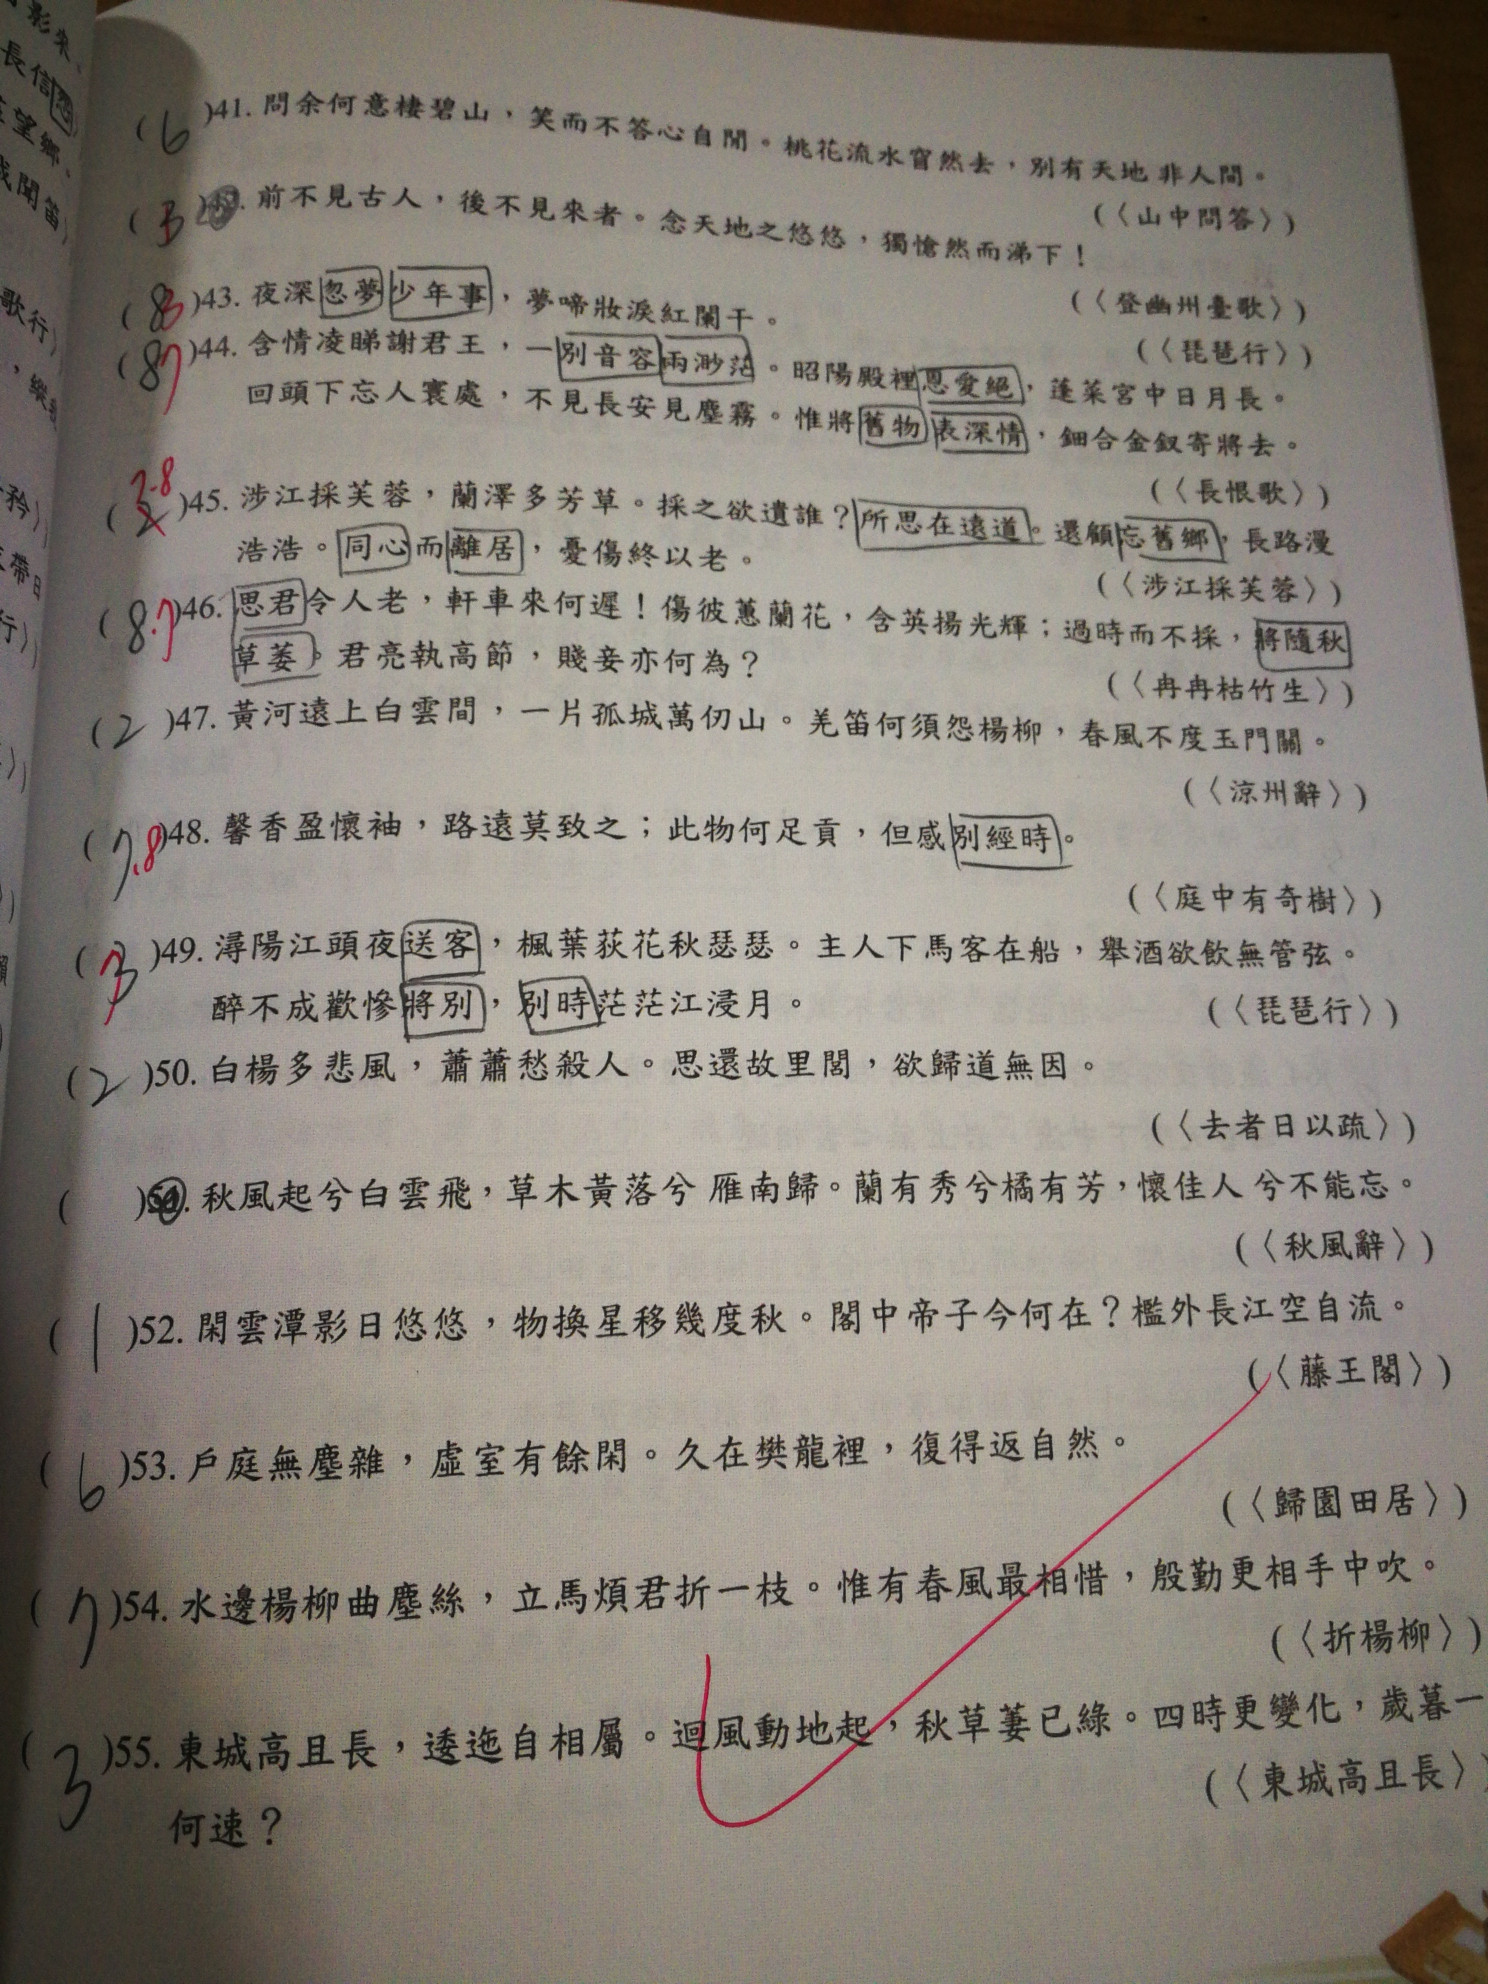 (6)41. 問余何意棲碧山，笑而不答心自閒。桃花流水窅然去，別有天地非人間。
(〈山中問答〉)
(3)42. 前不見古人，後不見來者。念天地之悠悠，獨愴然而涕下！
(〈登幽州臺歌〉)
(83)43. 夜深忽夢少年事，夢啼妝淚紅闌干。
(〈琵琶行〉)
(87)44. 含情凌睇謝君王，一別音容兩渺茫。昭陽殿裡恩愛絕，蓬萊宮中日月長。
回頭下忘人寰處，不見長安見塵霧。惟將舊物表深情，鈿合金釵寄將去。
(〈長恨歌〉)
2.8
(2)45. 涉江採芙蓉，蘭澤多芳草。採之欲遺誰？所思在遠道。還顧忘舊鄉，長路漫
浩浩。同心而離居，憂傷終以老。
(〈涉江採芙蓉〉)
(8.7)46. 思君令人老，軒車來何遲！傷彼蕙蘭花，含英揚光輝；過時而不採，將隨秋
草萎。君亮執高節，賤妾亦何為？
(〈冉冉枯竹生〉)
(2)47. 黃河遠上白雲間，一片孤城萬仞山。羌笛何須怨楊柳，春風不度玉門關。
(〈涼州辭〉)
(7.8)48. 馨香盈懷袖，路遠莫致之；此物何足貢，但感別經時。
(〈庭中有奇樹〉)
(3)49. 潯陽江頭夜送客，楓葉荻花秋瑟瑟。主人下馬客在船，舉酒欲飲無管弦。
醉不成歡慘將別，別時茫茫江浸月。
(〈琵琶行〉)
(2)50. 白楊多悲風，蕭蕭愁殺人。思還故里閭，欲歸道無因。
(〈去者日以疏〉)
( )51. 秋風起兮白雲飛，草木黃落兮 雁南歸。蘭有秀兮橘有芳，懷佳人 兮不能忘。
(〈秋風辭〉)
(1)52. 閑雲潭影日悠悠，物換星移幾度秋。閣中帝子今何在？檻外長江空自流。
(〈藤王閣〉)
(6)53. 戶庭無塵雜，虛室有餘閑。久在樊龍裡，復得返自然。
(〈歸園田居〉)
(7)54. 水邊楊柳曲塵絲，立馬煩君折一枝。惟有春風最相惜，殷勤更相手中吹。
(〈折楊柳〉)
(3)55. 東城高且長，逶迤自相屬。迴風動地起，秋草萋已綠。四時更變化，歲暮一
何速？
(〈東城高且長〉)